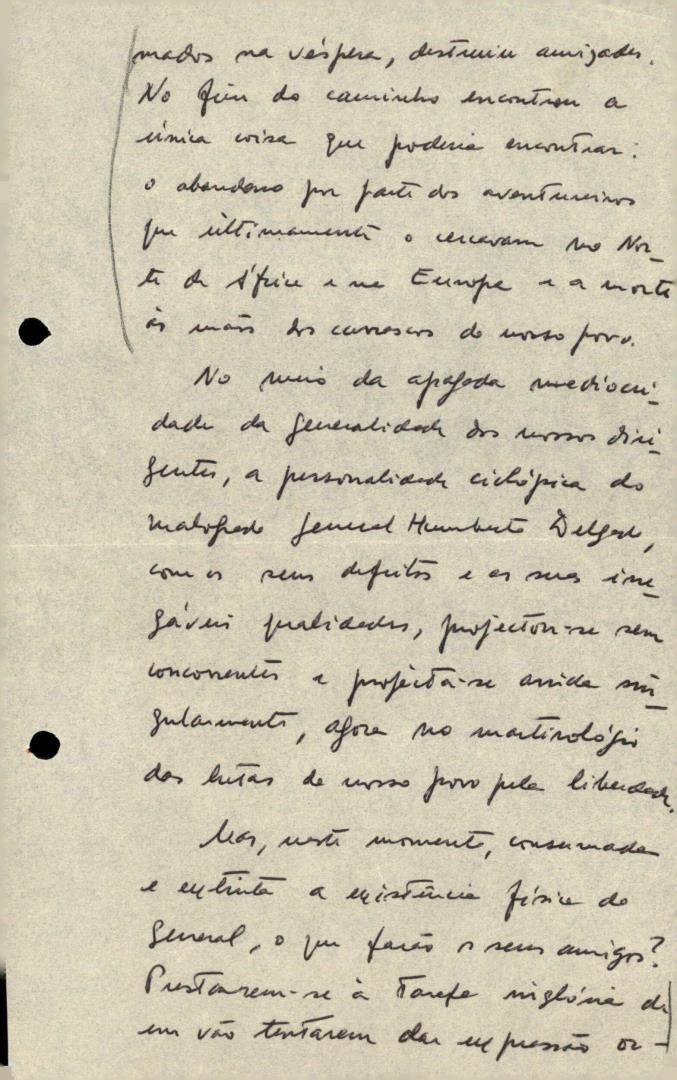 mados na véspera, destruiu amizades.
No fim do caminho encontrou a
única coisa que poderia encontrar:
o abandono por parte dos aventureiros
que ùltimamente o cercavam no Nor-
te de África e na Europa e a morte
às mãos dos carrascos do nosso povo.
No meio da apagada mediocri-
dade da generalidade dos nossos diri-
gentes, a personalidade ciclópica do
malogrado General Humberto Delgado,
com os seus defeitos e as suas ine-
gáveis qualidades, projectou-se sem
concorrentes e projecta-se ainda sin-
gularmente, agora no martirológio
das lutas do nosso povo pela liberdade.
Mas, neste momento, consumada
e extinta a existência física do
General, o que farão os seus amigos?
Prestarem-se à tarefa inglória de
em vão tentarem dar expressão or-